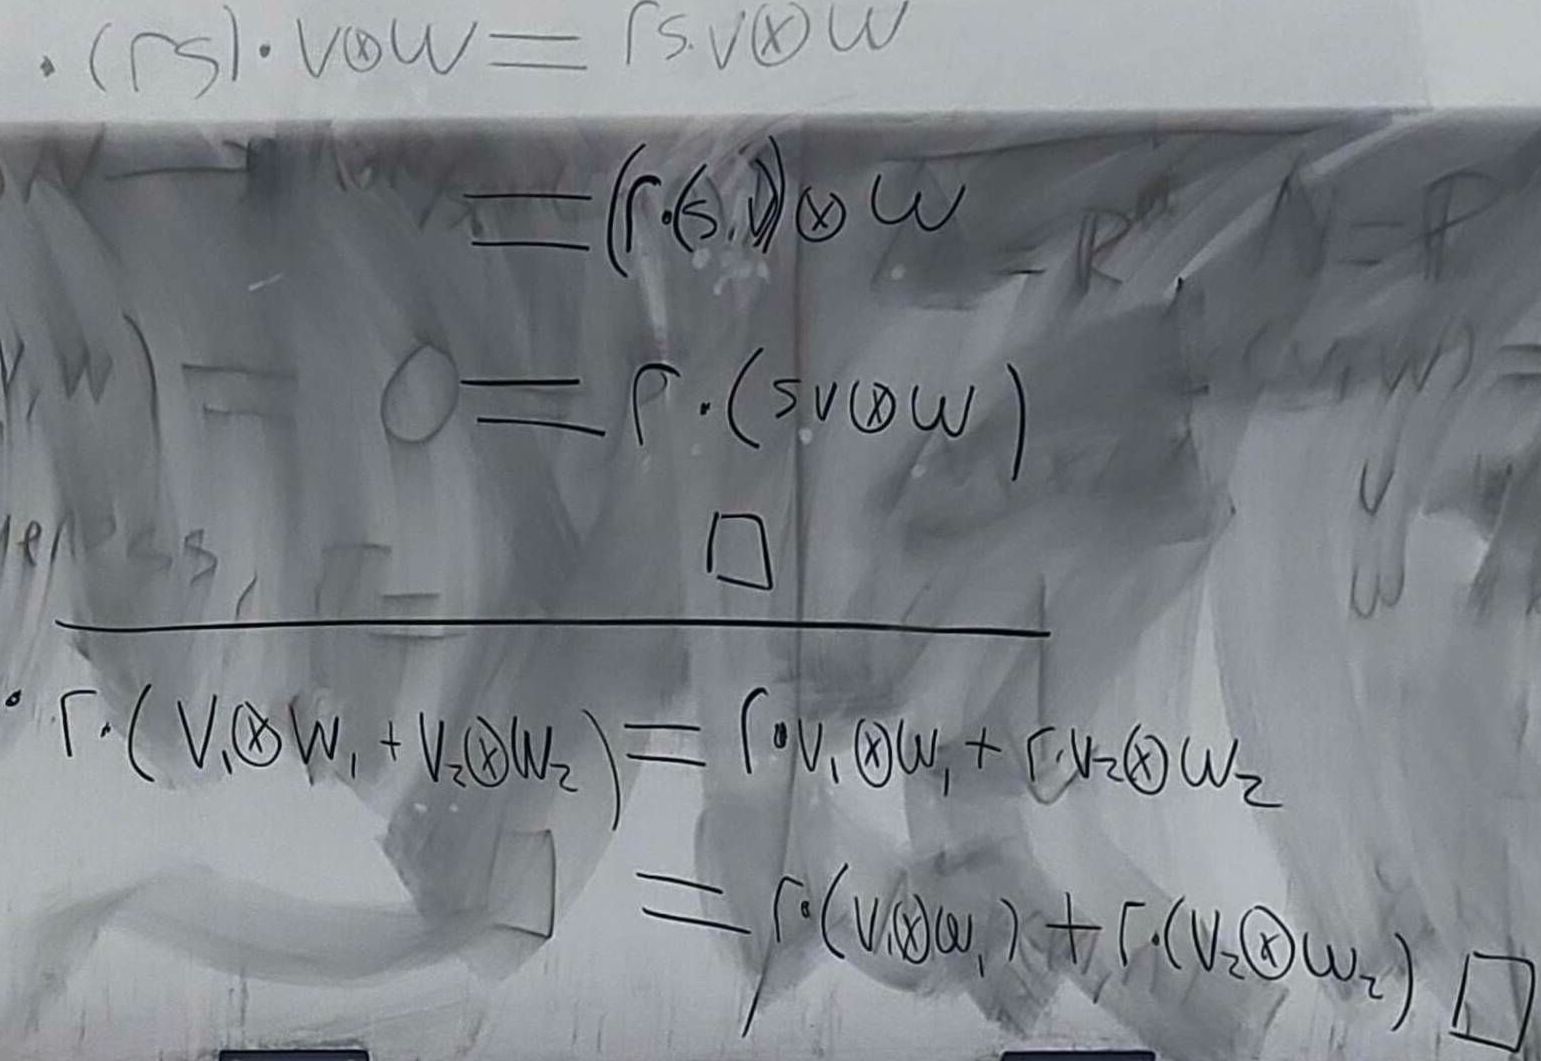 · (rs)· v⊗w = rs.v⊗w
= (r·(s.v))⊗w
= r·(sv⊗w)
□
· r·(v₁⊗w₁ + v₂⊗w₂) = r·v₁⊗w₁ + r·v₂⊗w₂
= r·(v₁⊗w₁) + r·(v₂⊗w₂) □